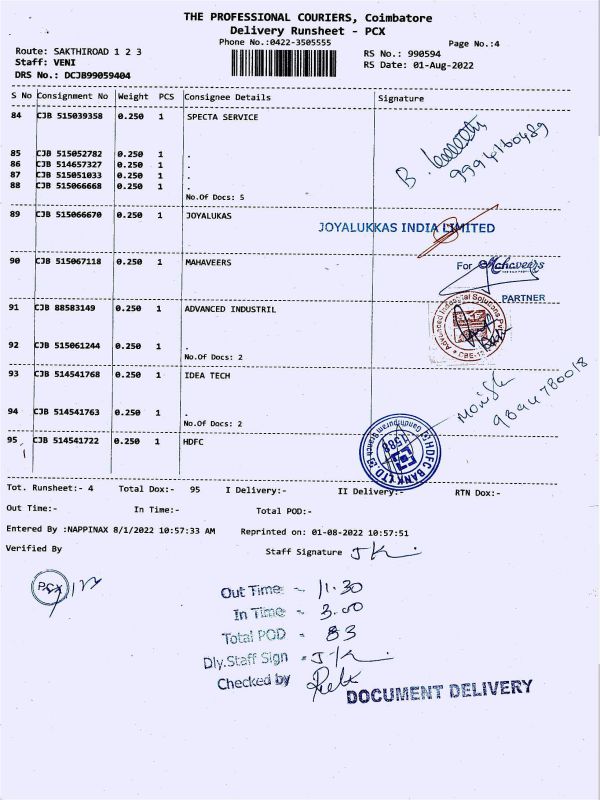 THE PROFESSIONAL COURIERS, Coimbatore
Delivery Runsheet - PCX
Phone No.:0422-3505555
Page No.:4
Route: SAKTHIROAD 1 2 3
RS No.: 990594
Staff: VENI
RS Date: 01-Aug-2022
DRS No.: DCJB99059404
S No Consignment No Weight PCS Consignee Details Signature
84 CJB 515039358 0.250 1 SPECTA SERVICE
9994160489
85 CJB 515052782 0.250 1 .
86 CJB 514657327 0.250 1 .
87 CJB 515051033 0.250 1 .
88 CJB 515066668 0.250 1 .
No.Of Docs: 5
89 CJB 515066670 0.250 1 JOYALUKAS
JOYALUKKAS INDIA LIMITED
90 CJB 515067118 0.250 1 MAHAVEERS
For Mahaveers
PARTNER
91 CJB 88583149 0.250 1 ADVANCED INDUSTRIL
Advanced Industrial Solutions Pvt
92 CJB 515061244 0.250 1 .
No.Of Docs: 2
93 CJB 514541768 0.250 1 IDEA TECH
9894780018
94 CJB 514541763 0.250 1 .
No.Of Docs: 2
95 CJB 514541722 0.250 1 HDFC
HDFC BANK LTD
Gandhipuram Branch
1588
Tot. Runsheet:- 4 Total Dox:- 95 I Delivery:- II Delivery:- RTN Dox:-
Out Time:- In Time:- Total POD:-
Entered By :NAPPINAX 8/1/2022 10:57:33 AM Reprinted on: 01-08-2022 10:57:51
Verified By Staff Signature
PCX
Out Time - 11.30
In Time - 3.00
Total POD - 83
Dly.Staff Sign -
Checked by
DOCUMENT DELIVERY